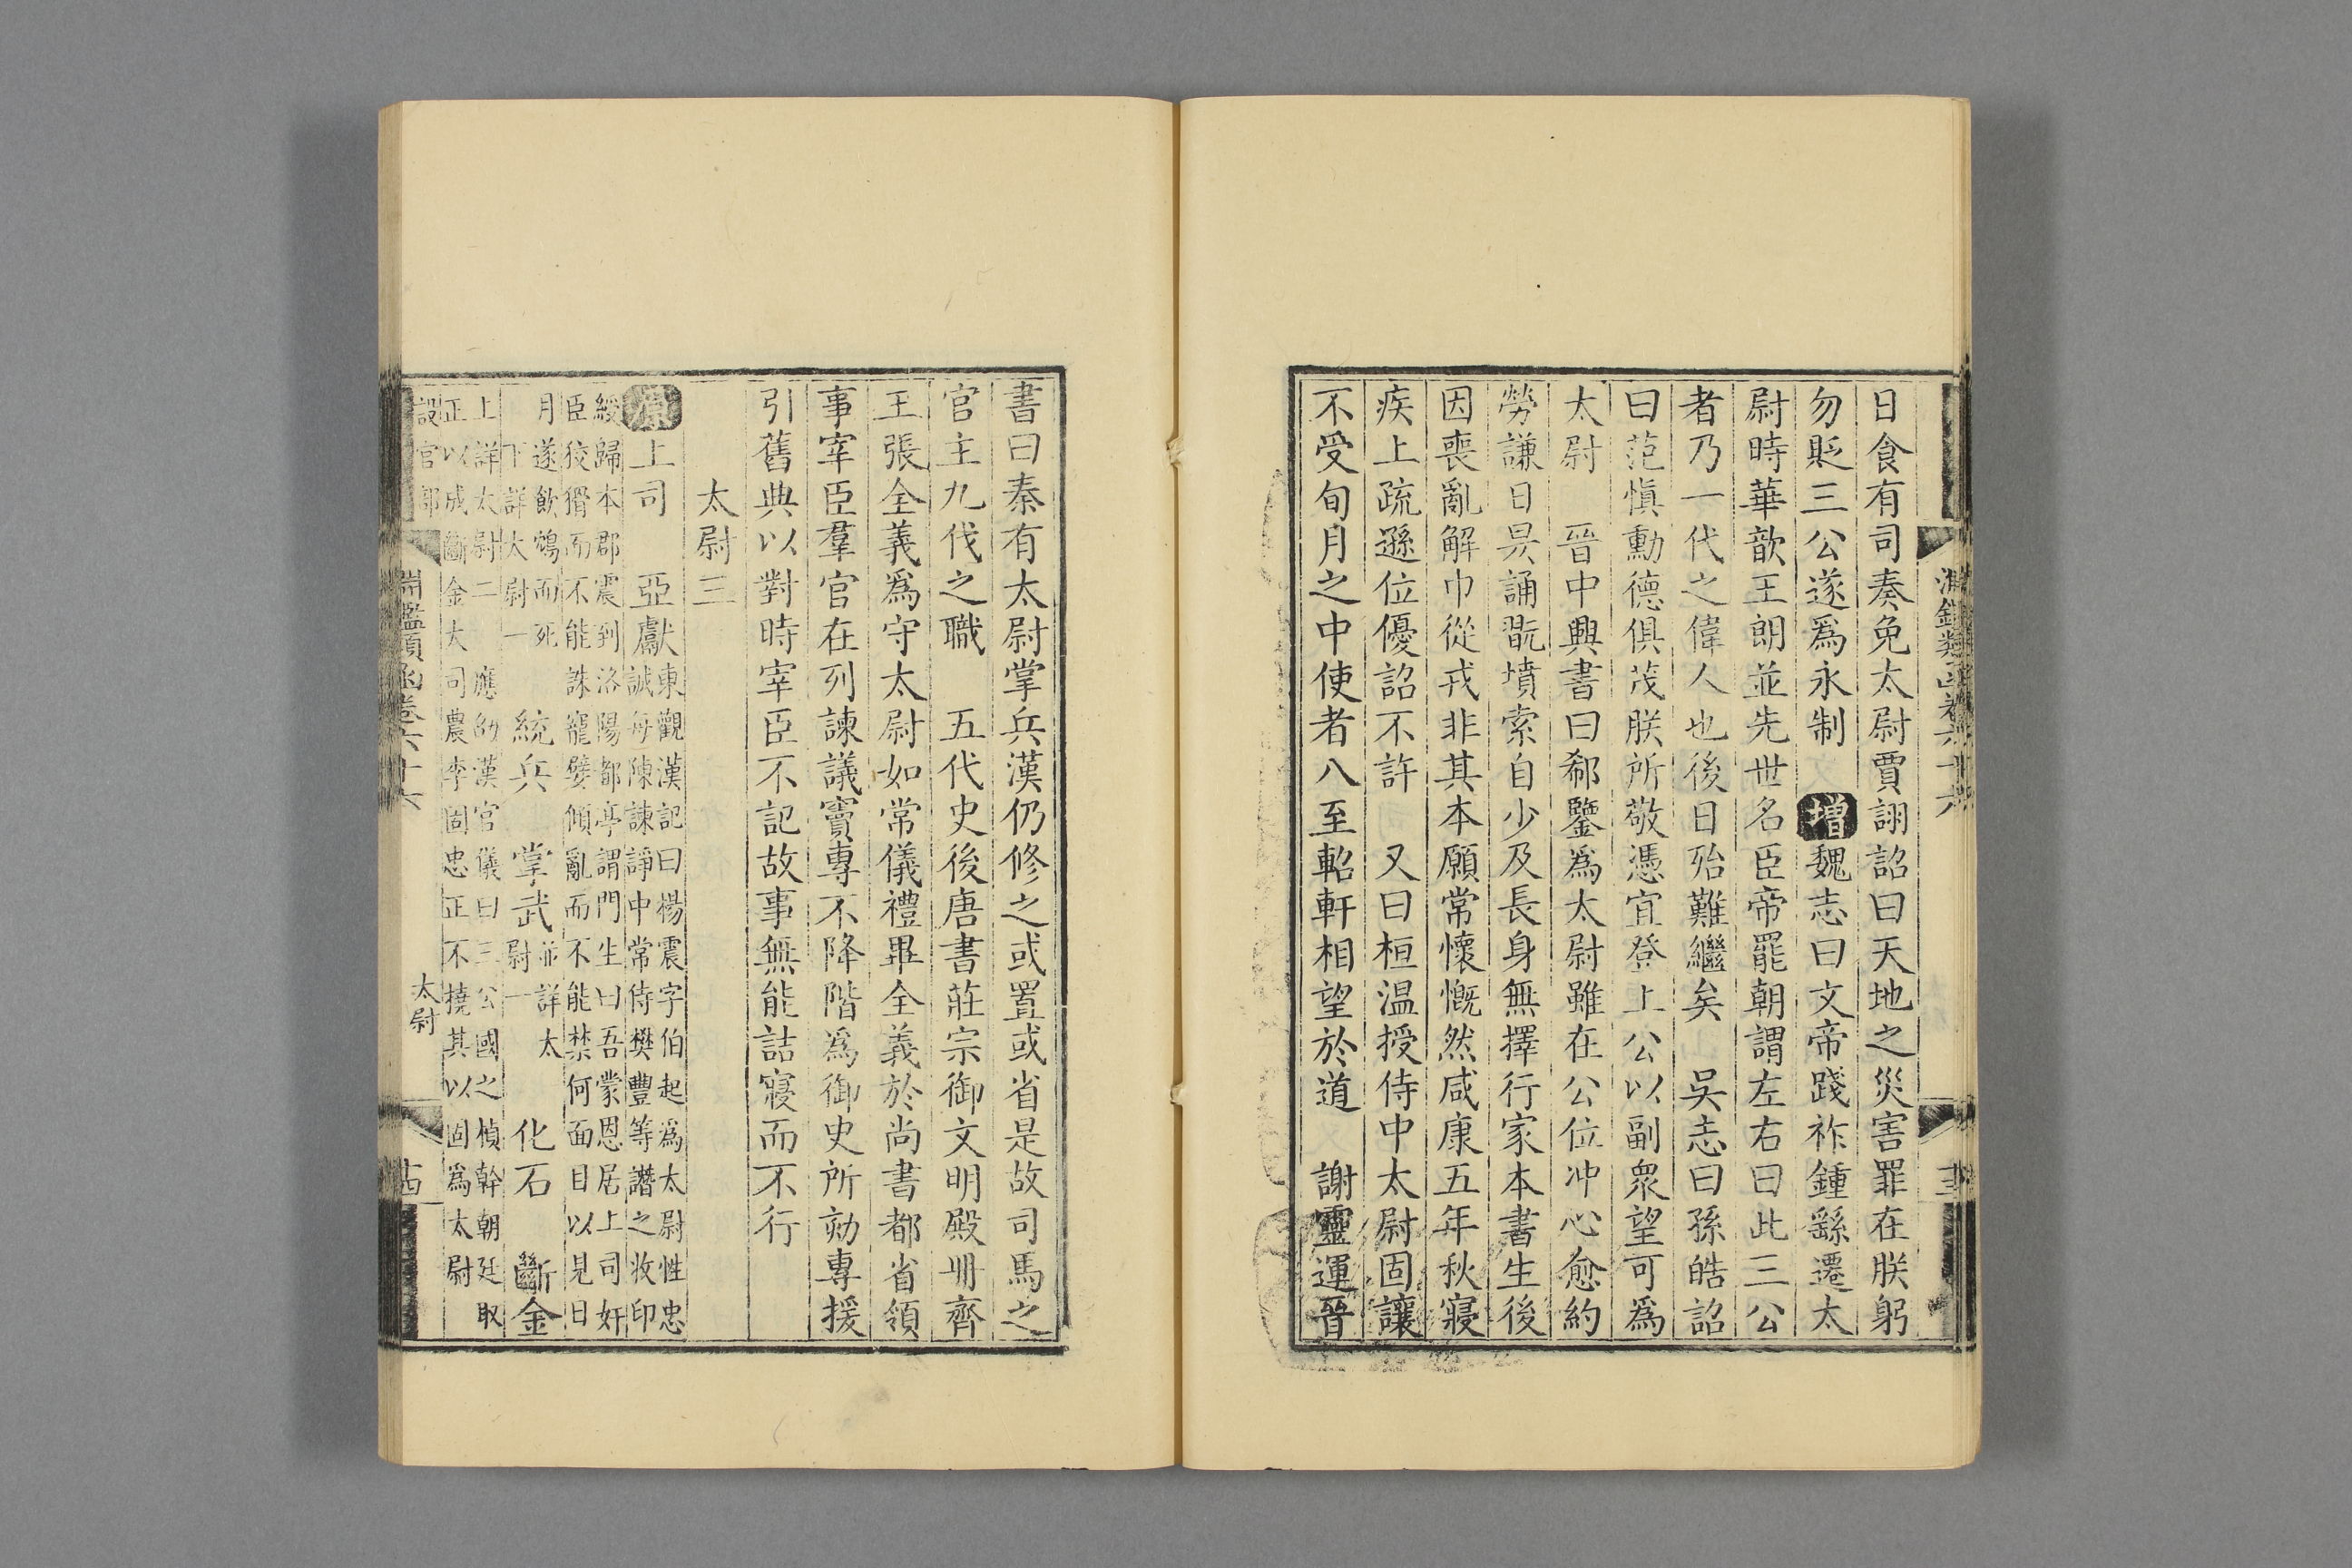 日食有司奏免太尉賈詡詔曰天地之災害罪在朕躬
勿貶三公遂爲永制 增魏志曰文帝踐祚鍾繇遷太
尉時華歆王朗並先世名臣帝罷朝謂左右曰此三公
者乃一代之偉人也後日殆難繼矣 吳志曰孫皓詔
曰范愼勳德俱茂朕所敬憑宜登上公以副衆望可爲
太尉 晉中興書曰郗鑒爲太尉雖在公位冲心愈約
勞謙日昃誦翫墳索自少及長身無擇行家本書生後
因喪亂解巾從戎非其本願常懷慨然咸康五年秋寢
疾上疏遜位優詔不許 又曰桓温授侍中太尉固讓
不受旬月之中使者八至軺軒相望於道 謝靈運晉
書曰秦有太尉掌兵漢仍修之或置或省是故司馬之
官主九伐之職 五代史後唐書莊宗御文明殿冊齊
王張全義爲守太尉如常儀禮畢全義於尚書都省領
事宰臣羣官在列諫議竇專不降階爲御史所劾專援
引舊典以對時宰臣不記故事無能詰寢而不行
太尉三
原上司 亞獻東觀漢記曰楊震字伯起爲太尉性忠
誠每陳諫諍中常侍樊豐等譖之收印
綬歸本郡震到洛陽都亭謂門生曰吾蒙恩居上司奸
臣狡猾而不能誅寵嬖傾亂而不能禁何面目以見日
月遂飲鴆而死
下詳太尉一 統兵 掌武並詳太
尉一 化石 斷金
上詳太尉二 應劭漢官儀曰三公國之楨幹朝廷取
正以成斷金大司農李固忠正不撓其以固爲太尉
淵鑑類函卷六十六
太尉
十四